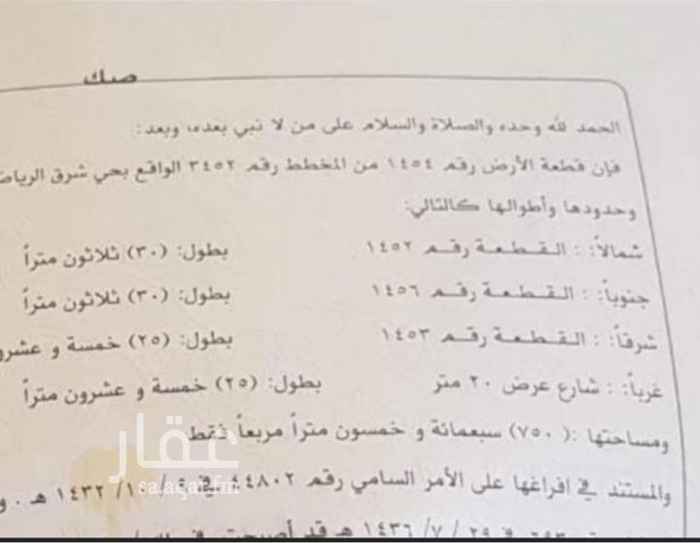 صك
الحمد لله وحده والصلاة والسلام على من لا نبي بعده، وبعد:
فإن قطعة الأرض رقم ١٤٥٤ من المخطط رقم ٣٤٥٢ الواقع بحي شرق الرياض
وحدودها وأطوالها كالتالي:
شمالاً: : القطعة رقم ١٤٥٢ بطول: (٣٠) ثلاثون متراً
جنوباً: : القطعة رقم ١٤٥٦ بطول: (٣٠) ثلاثون متراً
شرقاً: : القطعة رقم ١٤٥٣ بطول: (٢٥) خمسة و عشرو
غرباً: : شارع عرض ٢٠ متر بطول: (٢٥) خمسة و عشرون متراً
ومساحتها :( ٧٥٠) سبعمائة و خمسون متراً مربعاً فقط
والمستند في افراغها على الأمر السامي رقم ٤٤٨٠٢ في / ١٠ / ١٤٣٢ هـ . و
في ٢٩ / ٧ / ١٤٣٦ هـ قد أصبحت في
عقار
sa.aqar.fm